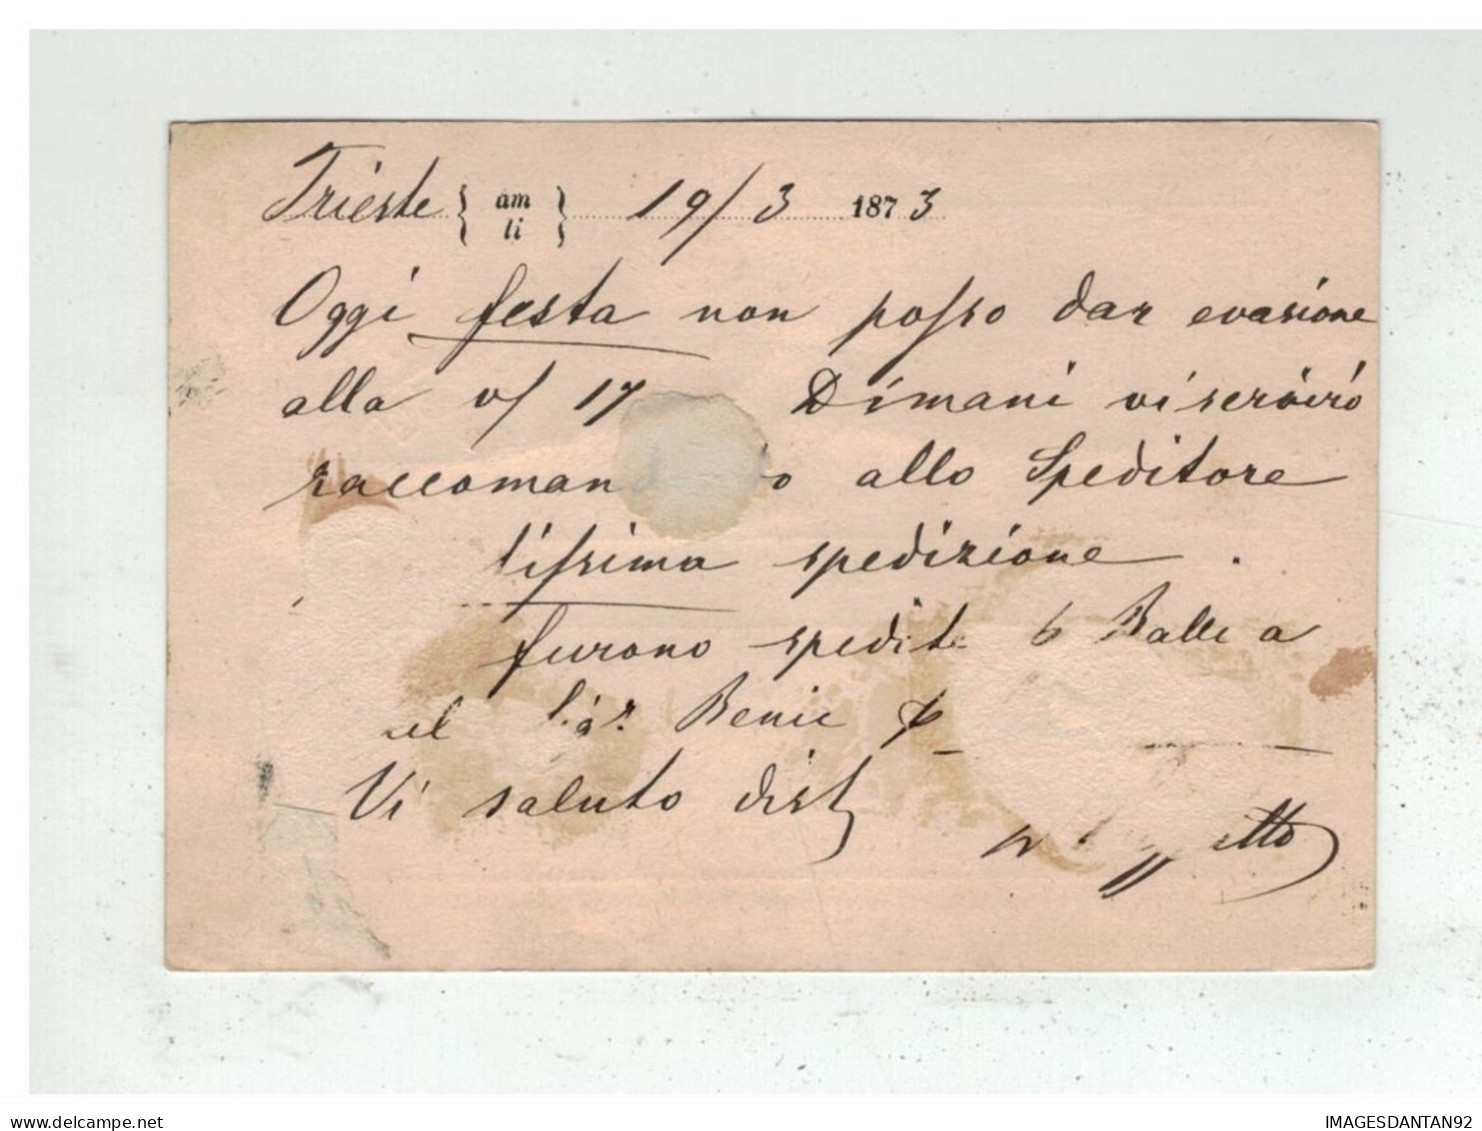 Trieste { am li } 19/3 1873
Oggi festa non posso dar evasione
alla v/ 17 Dimani vi servirò
raccoman o allo Speditore
tissima spedizione .
furono spedite 6 Balle a
el Benic
Vi saluto dist
delcampe.net
IMAGESDANTAN92